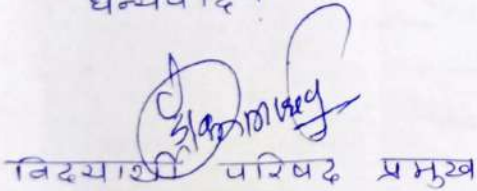 धन्यवाद.
विद्यार्थी परिषद प्रमुख